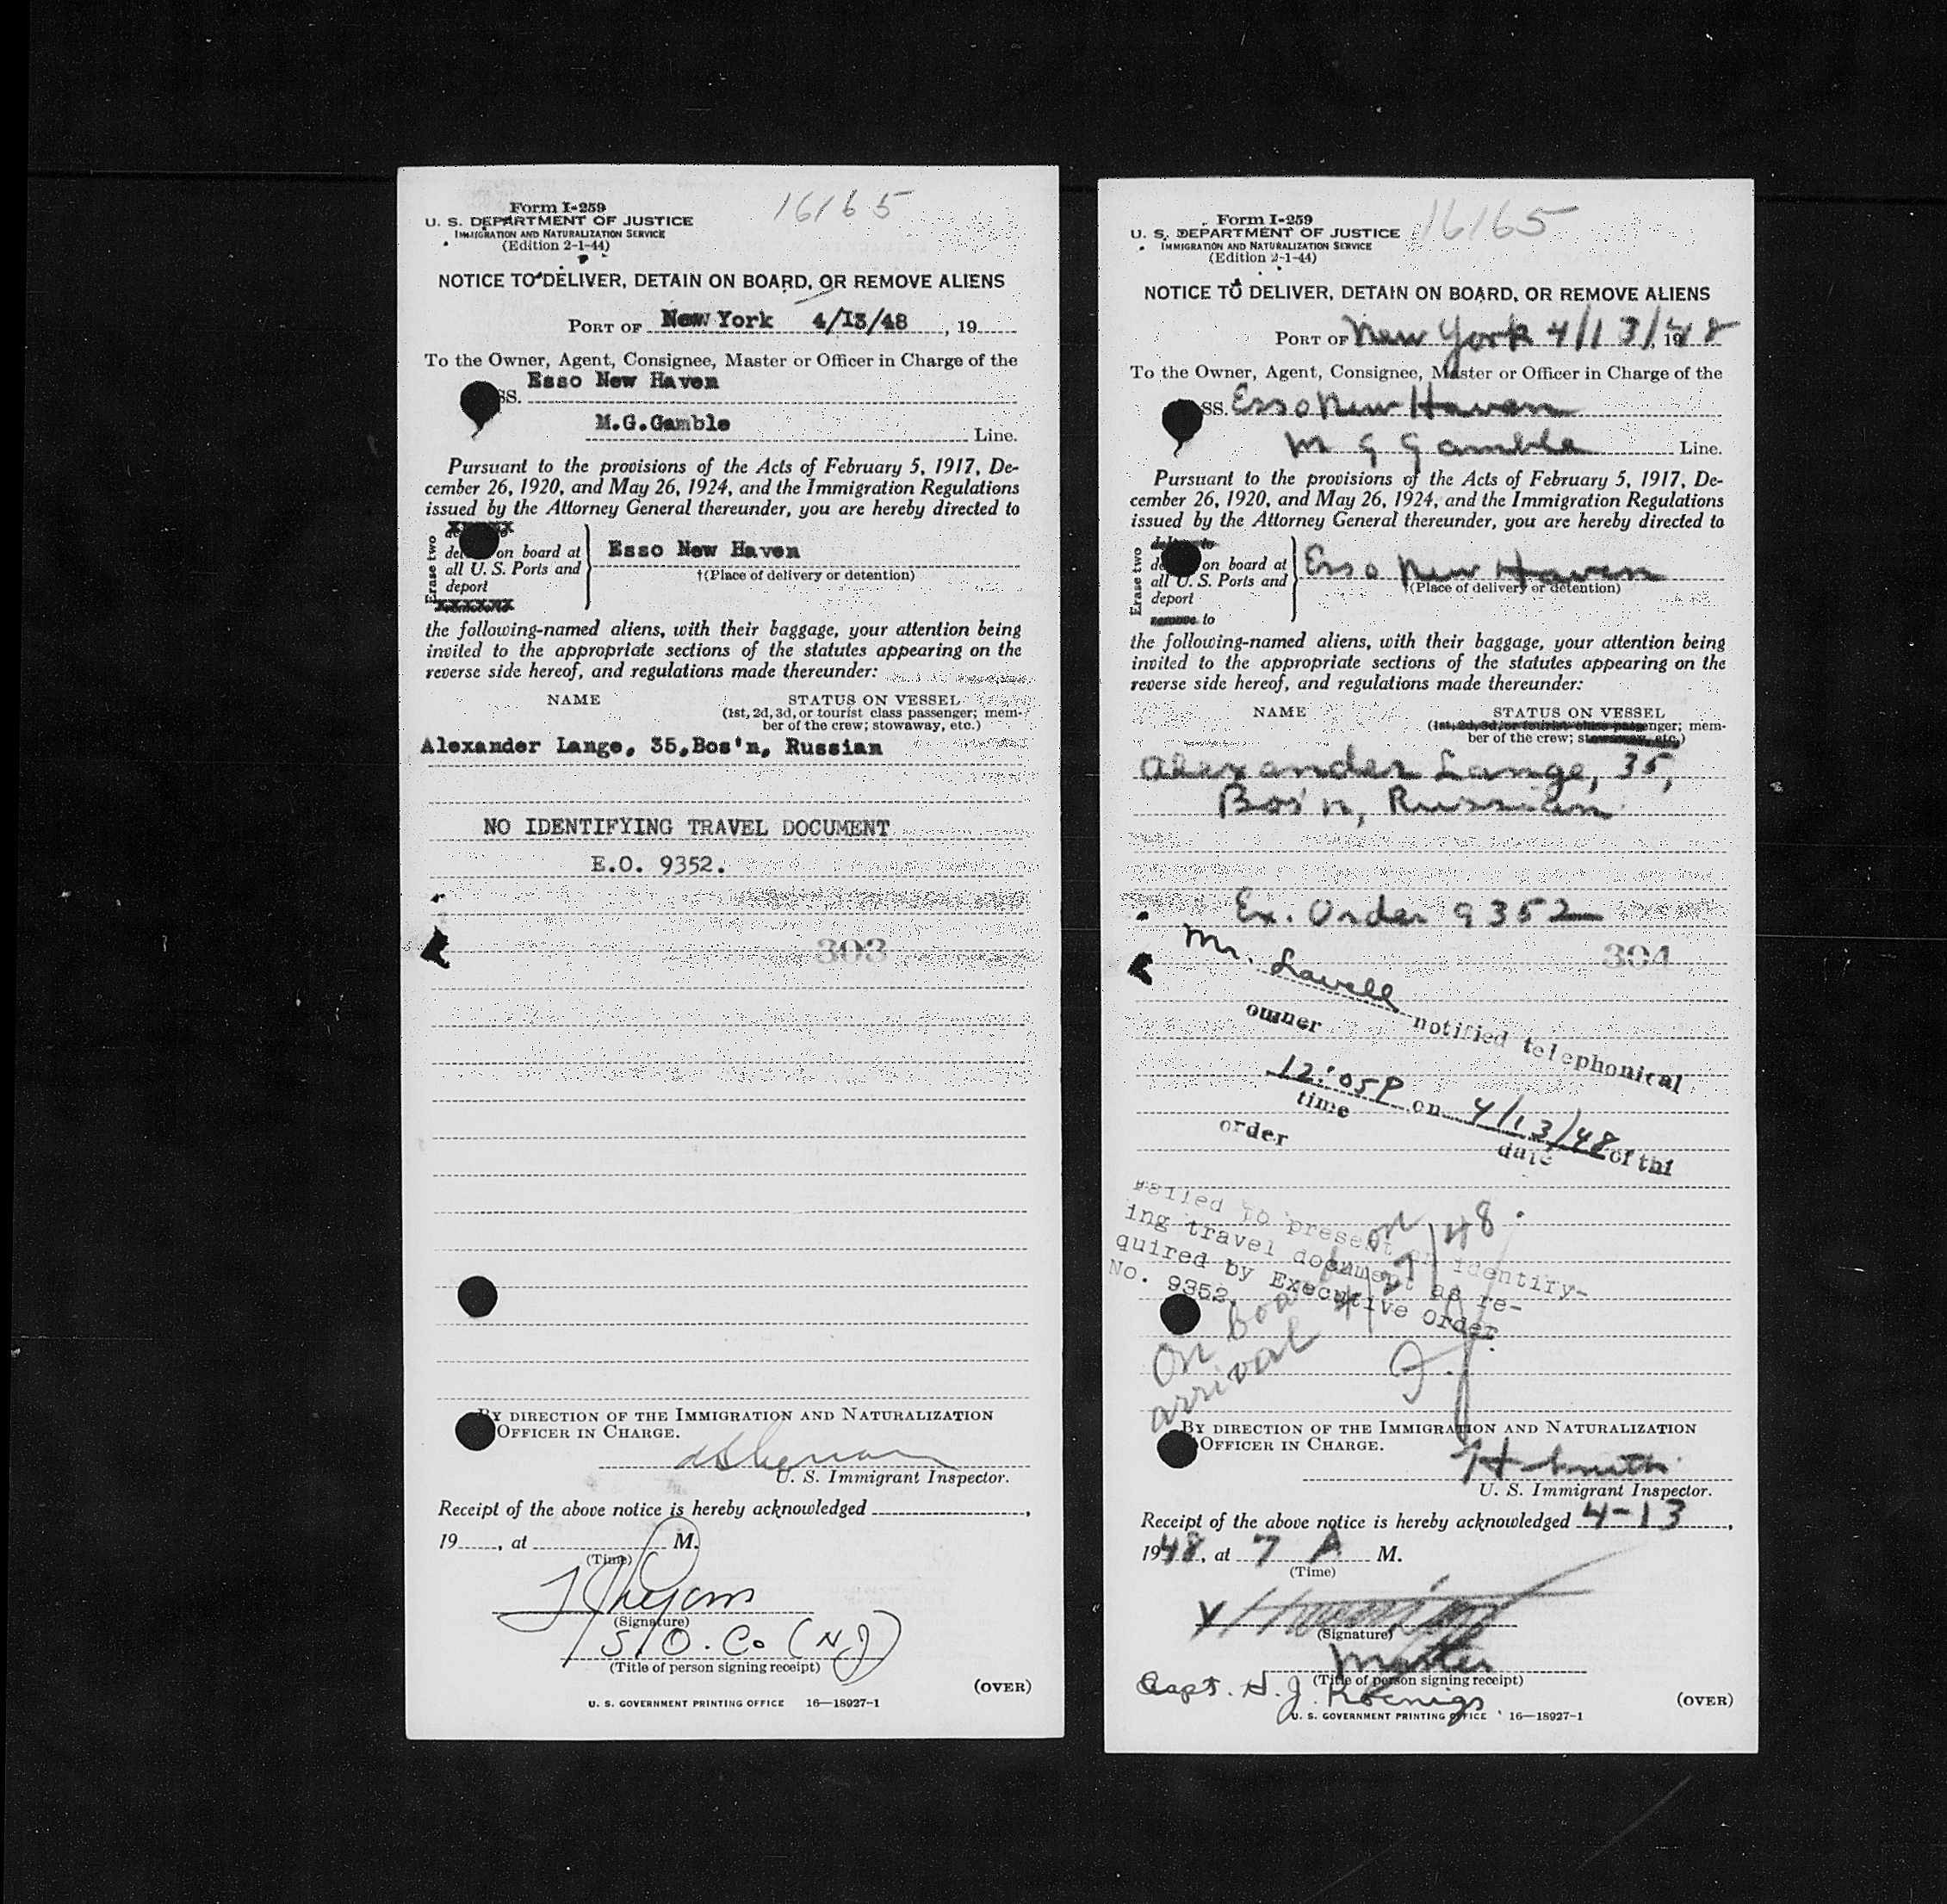 16165
Form I-259
U. S. DEPARTMENT OF JUSTICE
IMMIGRATION AND NATURALIZATION SERVICE
(Edition 2-1-44)
NOTICE TO DELIVER, DETAIN ON BOARD, OR REMOVE ALIENS
PORT OF New York 4/13/48, 19
To the Owner, Agent, Consignee, Master or Officer in Charge of the
SS. Esso New Haven
M.G.Gamble Line.
Pursuant to the provisions of the Acts of February 5, 1917, De-
cember 26, 1920, and May 26, 1924, and the Immigration Regulations
issued by the Attorney General thereunder, you are hereby directed to
Erase two
on board at
all U. S. Ports and
deport
Esso New Haven
†(Place of delivery or detention)
the following-named aliens, with their baggage, your attention being
invited to the appropriate sections of the statutes appearing on the
reverse side hereof, and regulations made thereunder:
NAME STATUS ON VESSEL
(1st, 2d, 3d, or tourist class passenger; mem-
ber of the crew; stowaway, etc.)
Alexander Lange, 35,Bos'n, Russian
NO IDENTIFYING TRAVEL DOCUMENT
E.O. 9352.
303
BY DIRECTION OF THE IMMIGRATION AND NATURALIZATION
OFFICER IN CHARGE.
U. S. Immigrant Inspector.
Receipt of the above notice is hereby acknowledged ,
19 , at M.
(Time)
(Signature)
S.O. Co (NJ)
(Title of person signing receipt)
(OVER)
U. S. GOVERNMENT PRINTING OFFICE 16—18927-1
16165
Form I-259
U. S. DEPARTMENT OF JUSTICE
IMMIGRATION AND NATURALIZATION SERVICE
(Edition 2-1-44)
NOTICE TO DELIVER, DETAIN ON BOARD, OR REMOVE ALIENS
PORT OF New York 4/13/, 1948
To the Owner, Agent, Consignee, Master or Officer in Charge of the
SS. Esso New Haven
M G Gamble Line.
Pursuant to the provisions of the Acts of February 5, 1917, De-
cember 26, 1920, and May 26, 1924, and the Immigration Regulations
issued by the Attorney General thereunder, you are hereby directed to
Erase two
deliver to
on board at
all U. S. Ports and
deport
remove to
Esso New Haven
†(Place of delivery or detention)
the following-named aliens, with their baggage, your attention being
invited to the appropriate sections of the statutes appearing on the
reverse side hereof, and regulations made thereunder:
NAME STATUS ON VESSEL
(1st, 2d, 3d, or tourist class passenger; mem-
ber of the crew; stowaway, etc.)
Alexander Lange, 35,
Bos'n, Russian
Ex. Order 9352
304
Mr. Lavell
owner notified telephonical
12:05P on 4/13/48 of thi
time date
order
Failed to present an identify-
ing travel document as re-
quired by Executive Order
No. 9352.
On board on
arrival 4/27/48.
BY DIRECTION OF THE IMMIGRATION AND NATURALIZATION
OFFICER IN CHARGE.
U. S. Immigrant Inspector.
Receipt of the above notice is hereby acknowledged 4-13,
1948, at 7 A M.
(Time)
(Signature)
Master
(Title of person signing receipt)
Capt. H. J. Koenigs
(OVER)
U. S. GOVERNMENT PRINTING OFFICE 16—18927-1